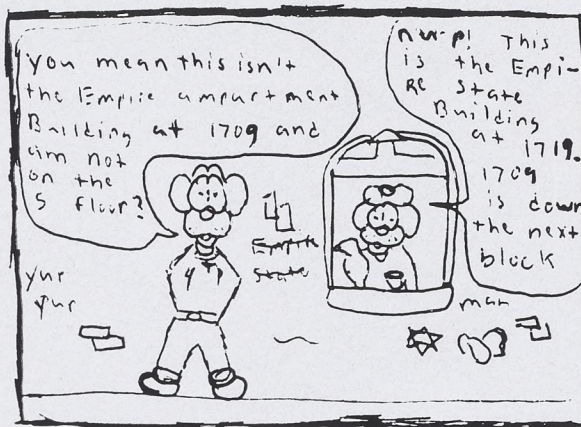 you mean this isn't
the Empire ampartment
Building at 1709 and
am not
on the
5 floor?
nurp! This
is the Empi-
Re state
Building
at 1719.
1709
is down
the next
block
Empire
State
yur
yur
man